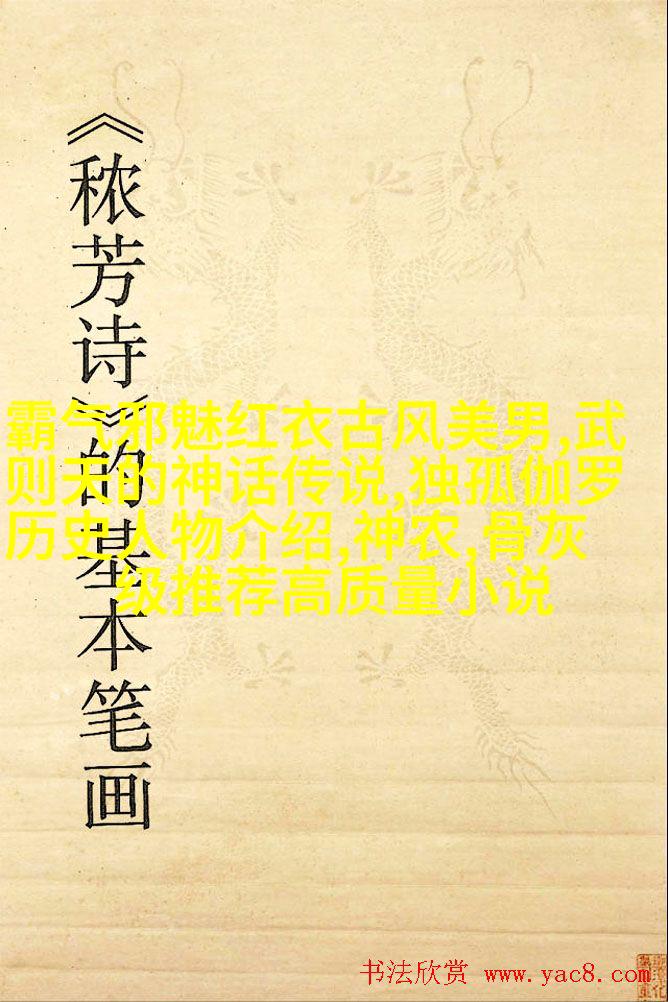 《秾芳诗》的基本笔画
霸气邪魅红衣古风美男,武
则天的神话传说,独孤伽罗
历史人物介绍,神农,骨灰
级推荐高质量小说
书法欣赏 www.yac8.com